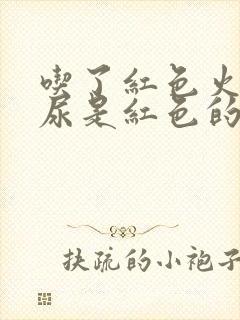 喫了紅色火
尿是紅色的
扶疏的小袍子